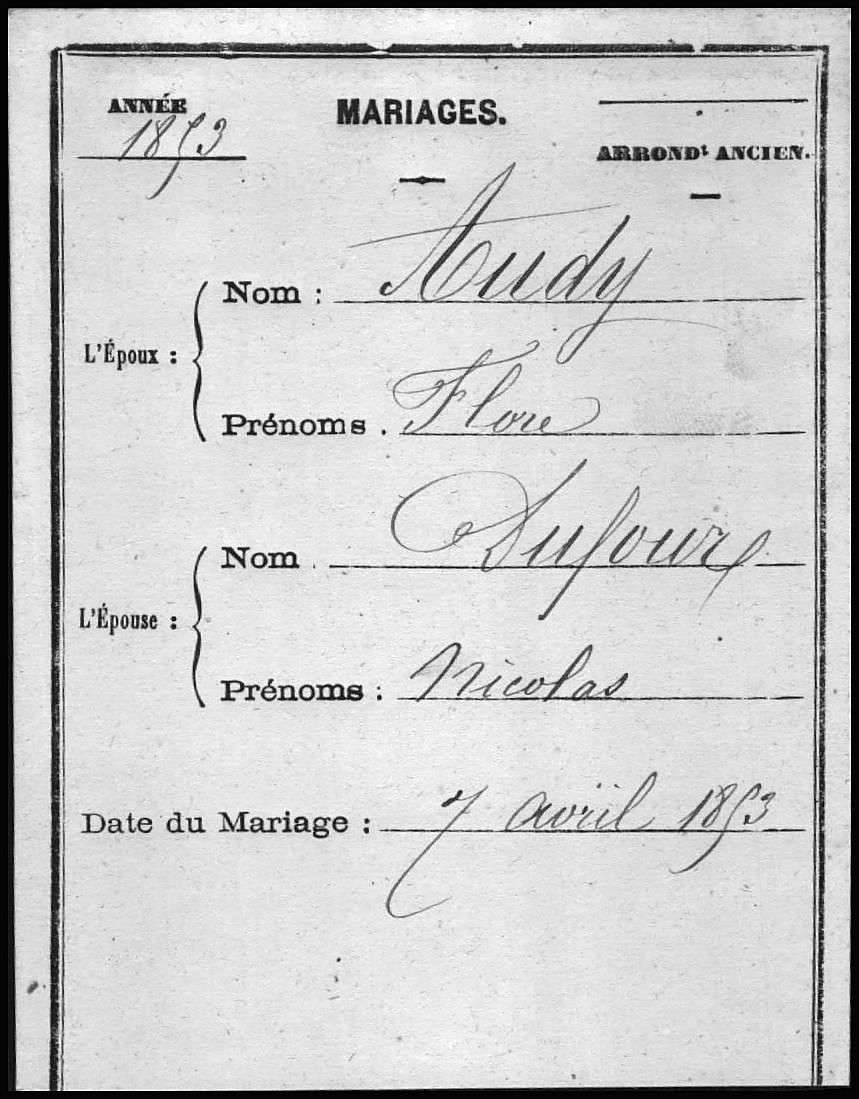 ANNÉE
1853
MARIAGES.
ARRONDt ANCIEN.
L'Époux :
Nom : Audy
Prénoms . Flore
L'Épouse :
Nom . Dufour
Prénoms : Nicolas
Date du Mariage : 7 avril 1853